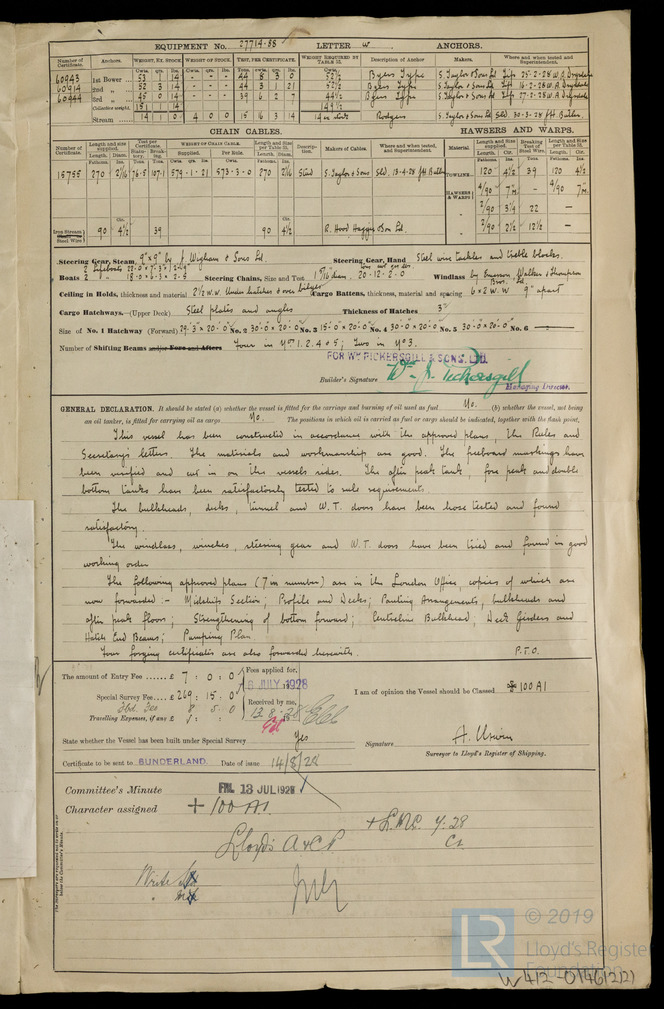 EQUIPMENT No. 27714.88 LETTER w ANCHORS.
Number of Certificate. Anchors. WEIGHT, EX. STOCK. WEIGHT OF STOCK. TEST, PER CERTIFICATE. WEIGHT REQUIRED BY TABLE 31. Description of Anchor Makers. Where and when tested and Superintendent.
Cwts. qrs. lbs. Cwts. qrs. lbs. Tons. cwts. qrs. lbs. Cwts.
60943 1st Bower 53 1 14 - - - 44 8 3 0 52½ Byers Type S. Taylor & Sons Ld
60914 2nd „ 52 3 14 - - - 44 3 1 21 52½ Byers Type S. Taylor & Sons Ld
60944 3rd „ 45 0 14 - - - 39 6 2 44½ Byers Type S. Taylor & Sons Ld
Collective weight. 151 1 14
Stream 14 1 0 4 0 0 15 16 3 14 Rodgers S. Taylor & Sons Ld
CHAIN CABLES. HAWSERS AND WARPS.
Number of Certificate. Length and size supplied. Test per Certificate. WEIGHT OF CHAIN CABLE. Length and size per Table 31. Description. Makers of Cables. Where and when tested, and Superintendent. Material. Length and size supplied. Breaking Test of Steel Wire. Length and size per Table 31.
Length. Diam. Statutory. Breaking. Supplied. Per Rule. Length. Diam. Length. Cir. Length. Cir.
15755 270 2 1/16 76.5 107.1 579.1.21 573.3.0 270 2 1/16 Stud S. Taylor & Sons Sld. 13-4-28 TOWLINE 120 4½ 39 120 4½
HAWSERS & WARPS 4/90 7 - 4/90 7
2/90 3¼ 22 -
Iron Stream or Steel Wire 90 4½ 39 90 4½ R. Hood Haggie & Son Ld. 2/90 2½ 12½ -
Steering Gear, Steam, 9" x 9" by J. Wigham & Sons Ld. Steering Gear, Hand Steel wire tackles and treble blocks.
Boats 2 Lifeboats Steering Chains, Size and Test 20-12-2-0 Windlass by Emerson Walker & Thompson Bros. Ld.
Ceiling in Holds, thickness and material 2½ W.W. Under hatches & over bilges Cargo Battens, thickness, material and spacing 6 x 2 W.W 9" apart
Cargo Hatchways.—(Upper Deck) Steel plates and angles Thickness of Hatches 3"
Size of No. 1 Hatchway (Forward) 29-3 x 20-0 No. 2 30-0 x 20-0 No. 3 15-0 x 20-0 No. 4 30-0 x 20-0 No. 5 30-0 x 20-0 No. 6 —
Number of Shifting Beams and/or Fore and Afters Four in Nos 1. 2. 4 & 5; Two in No 3.
FOR WM PICKERSGILL & SONS, LTD.
Builder's Signature Wm. J. Pickersgill Managing Director.
GENERAL DECLARATION. It should be stated (a) whether the vessel is fitted for the carriage and burning of oil used as fuel No. (b) whether the vessel, not being
an oil tanker, is fitted for carrying oil as cargo No. The positions in which oil is carried as fuel or cargo should be indicated, together with the flash point,
This vessel has been constructed in accordance with the approved plans, the Rules and
Secretary's letters. The materials and workmanship are good. The freeboard markings have
been verified and cut in on the vessels sides. The after peak tank, fore peak and double
bottom tanks have been satisfactorily tested to rule requirements
The bulkheads, decks, tunnel and W.T. doors have been hose tested and found
satisfactory.
The windlass, winches, steering gear and W.T. doors have been tried and found in good
working order
The following approved plans (7 in number) are in the London Office, copies of which are
now forwarded :- Midships Section; Profile and Decks; Panting Arrangements, bulkheads and
after peak floors; Strengthening of bottom forward; Centreline Bulkhead, Deck Girders and
Hatch End Beams; Pumping Plan.
Four forging certificates are also forwarded herewith. P.T.O.
The amount of Entry Fee ...... £ 7 : 0 : 0 Fees applied for,
Special Survey Fee.... £ 269 : 15 : 0 6 JULY 1928
Fbd. Fee 8 5 0 Received by me,
Travelling Expenses, if any £ : : 13.8.28
I am of opinion the Vessel should be Classed +100 A1
State whether the Vessel has been built under Special Survey Yes Signature A. Urwin
Surveyor to Lloyd's Register of Shipping.
Certificate to be sent to SUNDERLAND. Date of issue 14/8/28
Committee's Minute FRI. 13 JUL 1928
Character assigned + 100 A1.
+ L.M.C. 7.28
Lloyds A & C.P. C.L.
Write
© 2019
LR
Lloyd's Register
Foundation
W412-0146(2/2)